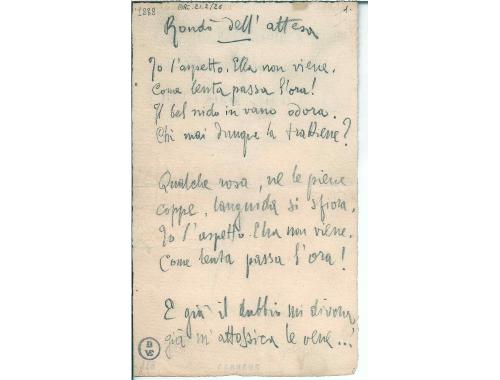 1888 ARC. 21.2/26 1.
Rondò dell'attesa
Io l'aspetto. Ella non viene.
Come lenta passa l'ora!
Il bel nido in vano odora.
Chi mai dunque la trattiene?
Qualche rosa, ne le piene
coppe, languida si sfiora.
Io l'aspetto. Ella non viene.
Come lenta passa l'ora!
E già il dubbio mi divora
già m'attossica le vene...!